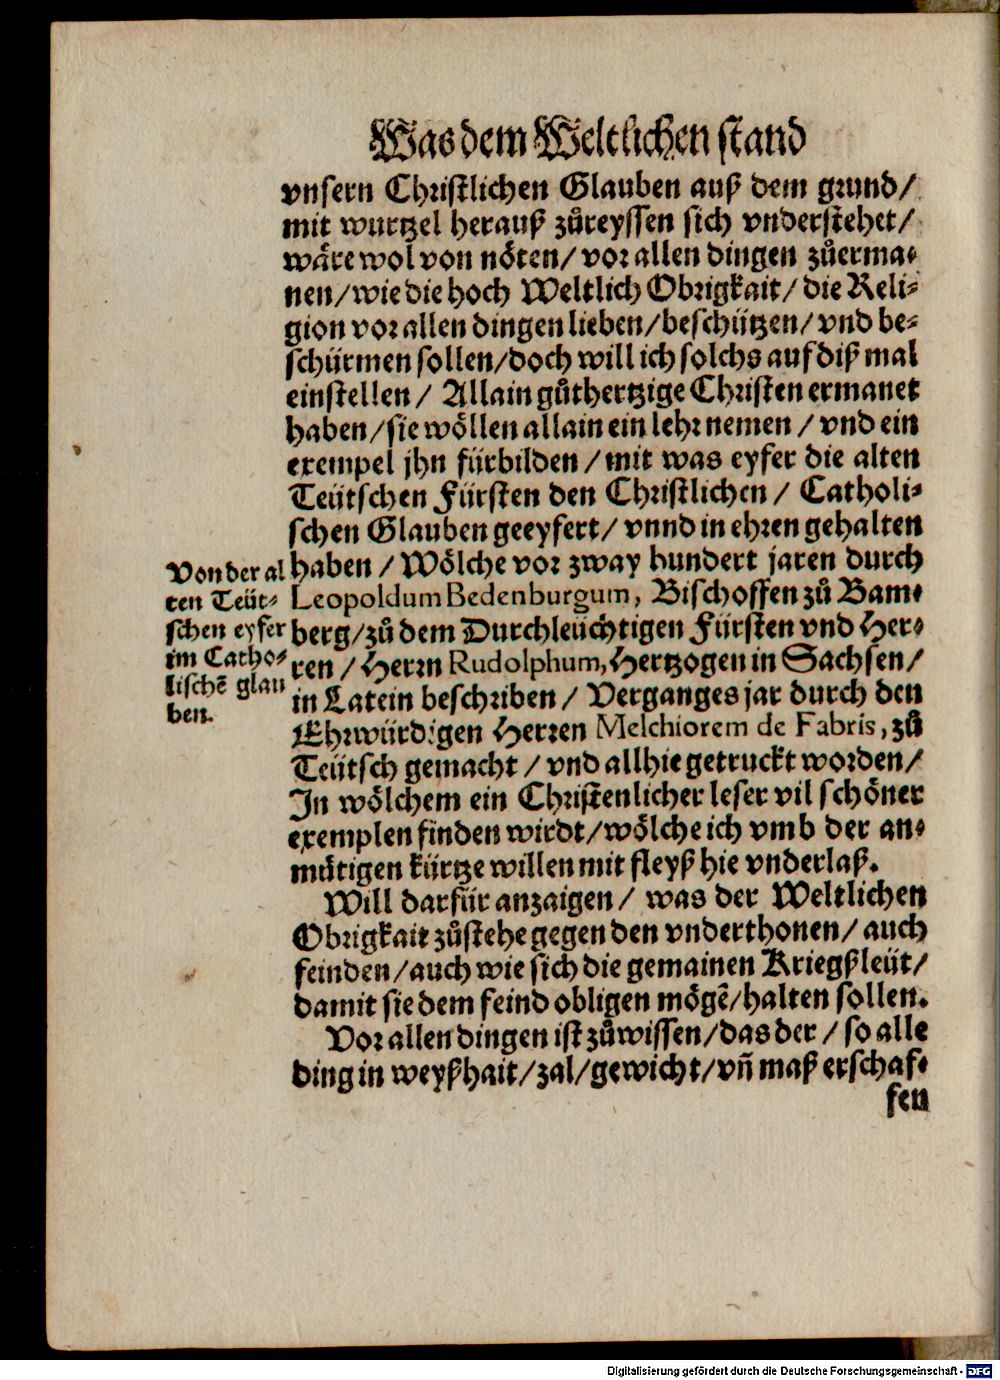 Was dem Weltlichen stand
vnsern Christlichen Glauben auß dem grund/
mit wurtzel herauß zůreyssen sich vnderstehet/
wäre wol von nöten/ vor allen dingen zůerma-
nen/ wie die hoch Weltlich Obrigkait/ die Reli-
gion vor allen dingen lieben/ beschützen/ vnd be-
schürmen sollen/ doch will ich solchs auf diß mal
einstellen/ Allain gůthertzige Christen ermanet
haben/ sie wöllen allain ein lehr nemen/ vnd ein
exempel jhn fürbilden/ mit was eyfer die alten
Teütschen Fürsten den Christlichen/ Catholi-
schen Glauben geeyfert/ vnnd in ehren gehalten
haben/ Wölche vor zway hundert jaren durch
Leopoldum Bedenburgum, Bischoffen zů Bam-
berg/ zů dem Durchleüchtigen Fürsten vnd Her-
ren/ Herrn Rudolphum, Hertzogen in Sachsen/
in Latein beschriben/ Verganges jar durch den
Ehrwürdigen Herren Melchiorem de Fabris, zů
Teütsch gemacht/ vnd allhie getruckt worden/
In wölchem ein Christenlicher leser vil schöner
exemplen finden wirdt/ wölche ich vmb der an-
mütigen kürtze willen mit fleyß hie vnderlaß.
Will darfür anzaigen/ was der Weltlichen
Obrigkait zůstehe gegen den vnderthonen/ auch
feinden/ auch wie sich die gemainen Kriegßleüt/
damit sie dem feind obligen mögẽ/ halten sollen.
Vor allen dingen ist zůwissen/ das der/ so alle
ding in weyßhait/ zal/ gewicht/ vñ maß erschaf-
fen
Von der al
ten Teüt-
schen eyfer
im Catho-
lischẽ glau
ben.
Digitalisierung gefördert durch die Deutsche Forschungsgemeinschaft - DFG